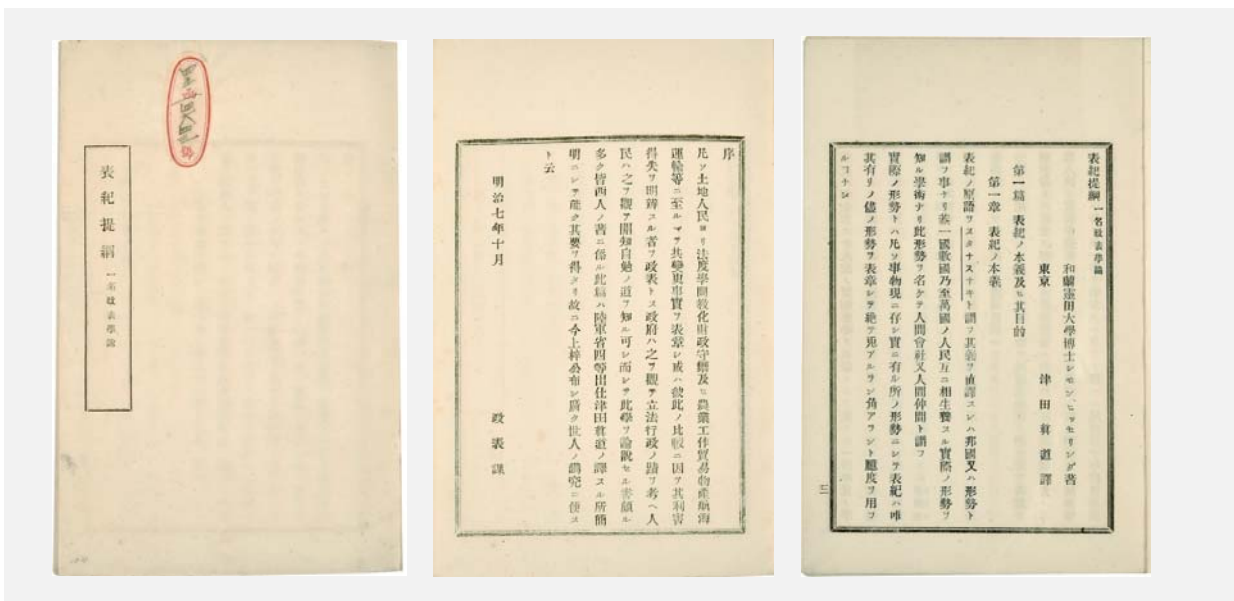 表紀提綱 一名政表學論
序
凡ソ土地人民ヨリ法度學問敎化財政守禦及ヒ農業工作貿易物產航海
運輸等ニ至ルマテ其變更事實ヲ表章シ或ハ彼此ノ比較ニ因テ其利害
得失ヲ明辨スル者ヲ政表トス政府ハ之ヲ觀テ立法行政ノ蹟ヲ考ヘ人
民ハ之ヲ觀テ開知自勉ノ道ヲ知ル可シ而シテ此學ヲ論說セル書頗ル
多ク皆西人ノ著ニ係ル此篇ハ陸軍省四等出仕津田眞道ノ譯スル所簡
明ニシテ能ク其要ヲ得タリ故ニ今上梓公布シ廣ク世人ノ講究ニ便ス
ト云
明治七年十月
政表課
表紀提綱 一名政表學論
和蘭靈田大學博士シモン、ヒッセリング著
東京 津田眞道譯
第一篇 表紀ノ本義及ヒ其目的
第一章 表紀ノ本義
表紀ノ原語ヲスタチスチキト謂フ其義ヲ直譯スレハ邦國又ハ形勢ト
謂フ事ナリ蓋一國數國乃至萬國ノ人民互ニ相生養スル實際ノ形勢ヲ
知ル學術ナリ此形勢ヲ名ケテ人間會社又人間仲間ト謂フ
實際ノ形勢トハ凡ソ事物現ニ存シ實ニ有ル所ノ形勢ニシテ表紀ハ唯
其有リノ儘ノ形勢ヲ表章シテ絕テ兎アルラン角アラント臆度ヲ用フ
ルコナシ